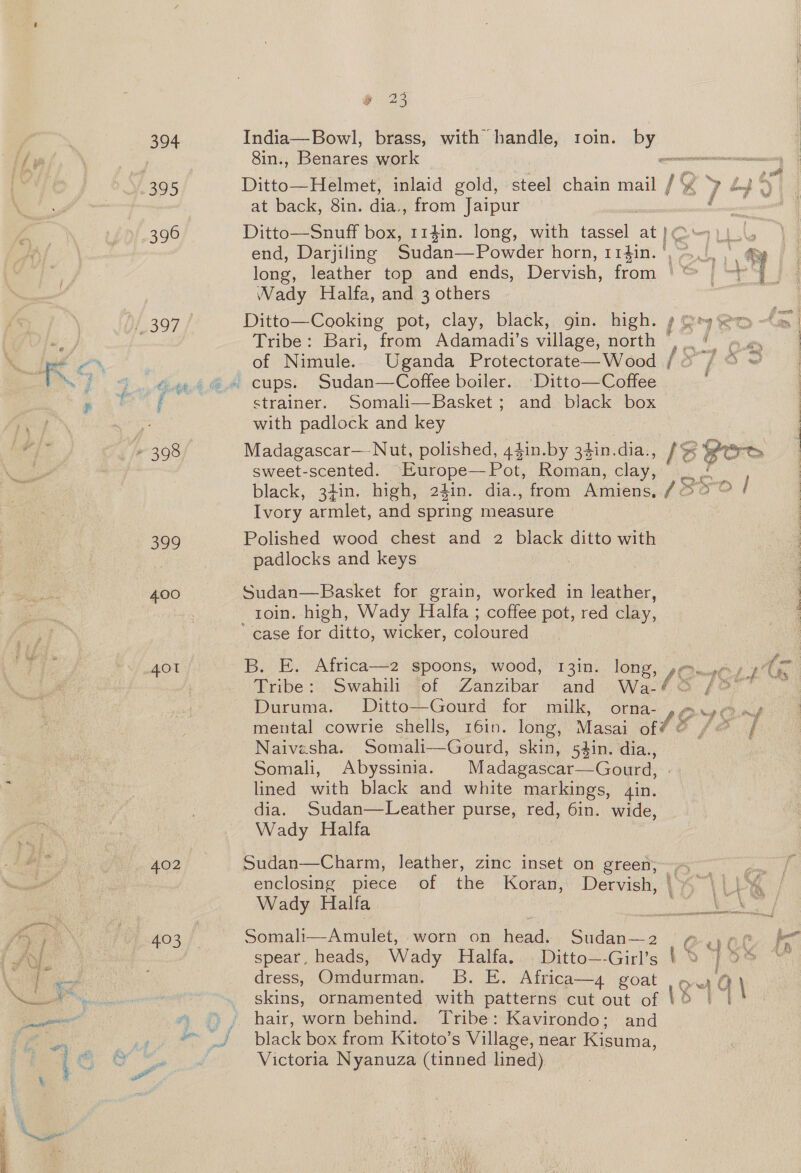 23
394 India—Bowl, brass, with handle, 10in. by
8in., Benares work
395 Ditto—Helmet, inlaid gold, steel chain mail
at back, 8in. dia., from Jaipur
396 Ditto—Snuff box, 11½in. long, with tassel at
end, Darjiling Sudan—Powder horn, 11½in.
long, leather top and ends, Dervish, from
Wady Halfa, and 3 others
397 Ditto—Cooking pot, clay, black, 9in. high.
Tribe: Bari, from Adamadi's village, north
of Nimule. Uganda Protectorate—Wood
cups. Sudan—Coffee boiler. Ditto—Coffee
strainer. Somali—Basket; and black box
with padlock and key
398 Madagascar—Nut, polished, 4½in.by 3½in.dia.,
sweet-scented. Europe—Pot, Roman, clay,
black, 3½in. high, 2½in. dia., from Amiens,
Ivory armlet, and spring measure
399 Polished wood chest and 2 black ditto with
padlocks and keys
400 Sudan—Basket for grain, worked in leather,
10in. high, Wady Halfa; coffee pot, red clay,
case for ditto, wicker, coloured
401 B. E. Africa—2 spoons, wood, 13in. long,
Tribe: Swahili of Zanzibar and Wa-
Duruma. Ditto—Gourd for milk, orna-
mental cowrie shells, 16in. long, Masai of
Naivasha. Somali—Gourd, skin, 5½in. dia.,
Somali, Abyssinia. Madagascar—Gourd,
lined with black and white markings, 4in.
dia. Sudan—Leather purse, red, 6in. wide,
Wady Halfa
402 Sudan—Charm, leather, zinc inset on green,
enclosing piece of the Koran, Dervish,
Wady Halfa
403 Somali—Amulet, worn on head. Sudan—2
spear heads, Wady Halfa. Ditto—Girl's
dress, Omdurman. B. E. Africa—4 goat
skins, ornamented with patterns cut out of
hair, worn behind. Tribe: Kavirondo; and
black box from Kitoto's Village, near Kisuma,
Victoria Nyanuza (tinned lined)